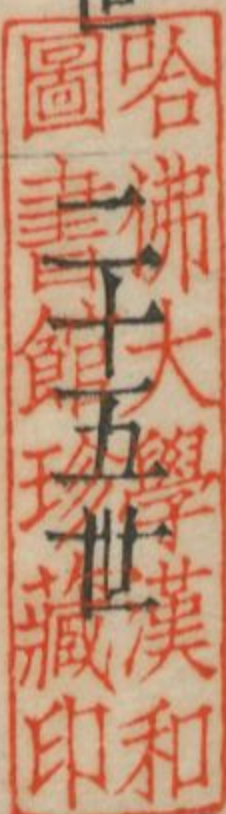 哈佛大學漢和
圖書館珍藏印
二十五世